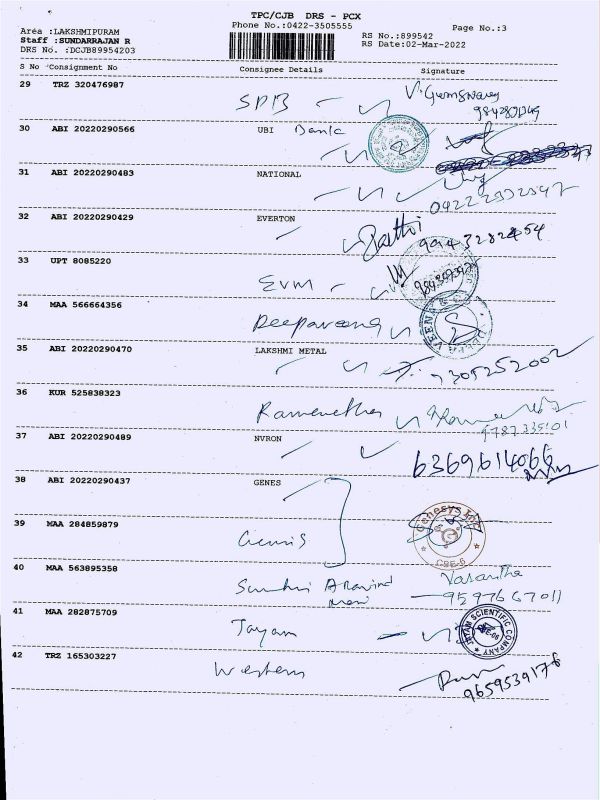 TPC/CJB DRS - PCX
Phone No.:0422-3505555
Page No.:3
Area :LAKSHMIPURAM
RS No.:899542
Staff :SUNDARRAJAN R
RS Date:02-Mar-2022
DRS No. :DCJB89954203
S No Consignment No Consignee Details Signature
29 TRZ 320476987
SDB
30 ABI 20220290566 UBI Bank
31 ABI 20220290483 NATIONAL
32 ABI 20220290429 EVERTON
9943282454
33 UPT 8085220
EVM
34 MAA 566664356
Deepaveena
35 ABI 20220290470 LAKSHMI METAL
36 KUR 525838323
37 ABI 20220290489 NVRON
6369614066
38 ABI 20220290437 GENES
39 MAA 284859879
Genesys Inc
CBE-6
40 MAA 563895358
Vasantha
9597667011
41 MAA 282875709
Jayam
SCIENTIFIC COMPANY
42 TRZ 165303227
Western
9659539176